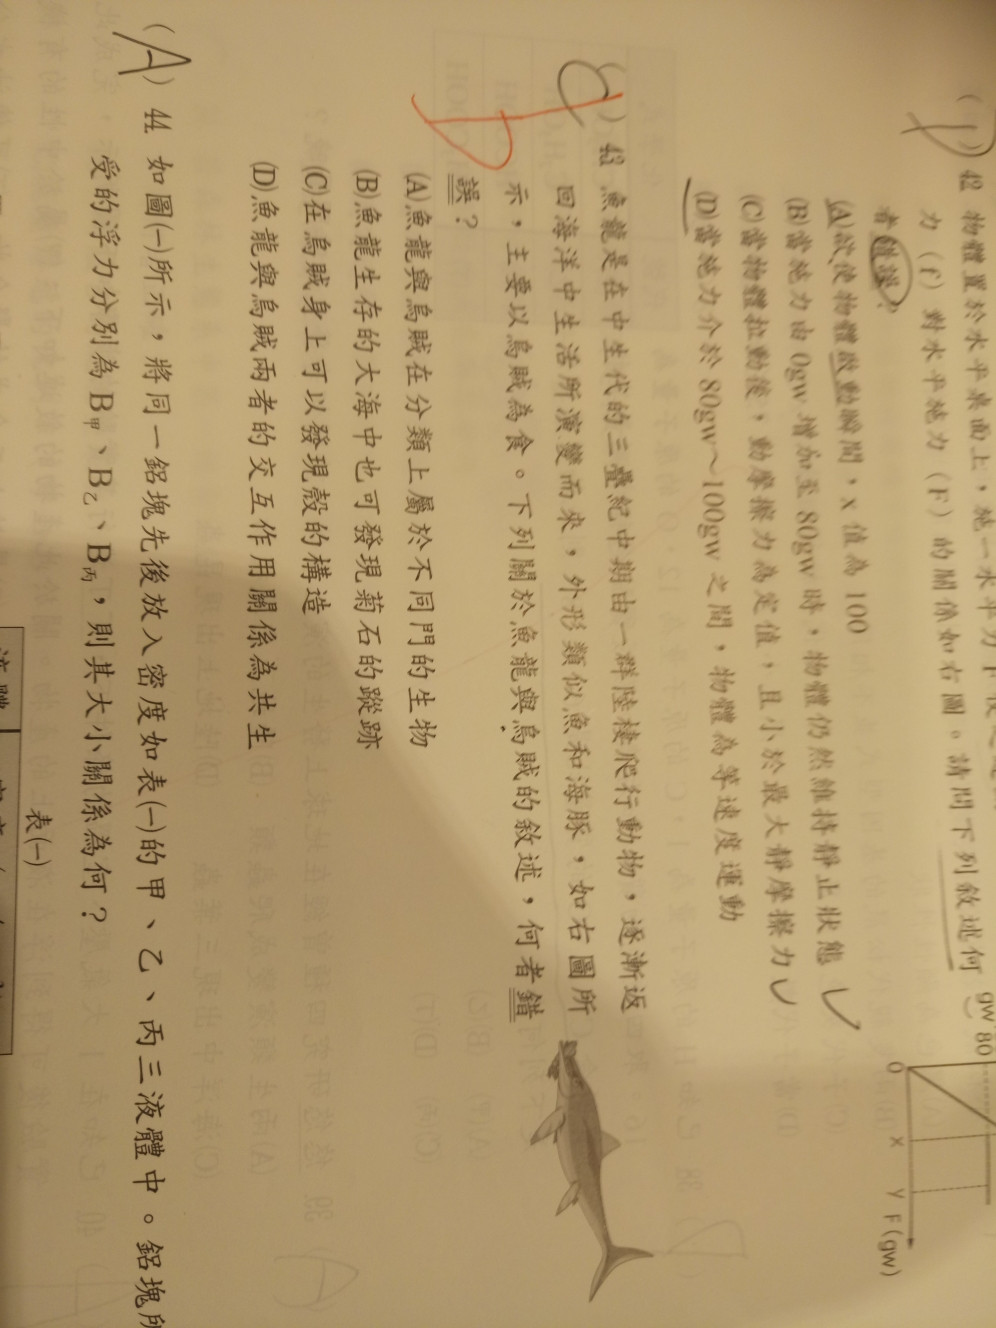 (D) 42 物體置於水平桌面上,施一水平力
力(f)對水平施力(F)的關係如右圖。請問下列敘述何
者錯誤?
(A)欲使物體啟動瞬間,x 值為 100
(B)當施力由 0gw 增加至 80gw 時,物體仍然維持靜止狀態
(C)當物體拉動後,動摩擦力為定值,且小於最大靜摩擦力
(D)當施力介於 80gw~100gw 之間,物體為等速度運動
gw
80
0 x y F(gw)
( ) 43 魚龍是在中生代的三疊紀中期由一群陸棲爬行動物,逐漸返
回海洋中生活所演變而來,外形類似魚和海豚,如右圖所
示,主要以烏賊為食。下列關於魚龍與烏賊的敘述,何者錯
誤?
D
(A)魚龍與烏賊在分類上屬於不同門的生物
(B)魚龍生存的大海中也可發現菊石的蹤跡
(C)在烏賊身上可以發現殼的構造
(D)魚龍與烏賊兩者的交互作用關係為共生
(A) 44 如圖(一)所示,將同一鋁塊先後放入密度如表(一)的甲、乙、丙三液體中。鋁塊所
受的浮力分別為 B甲、B乙、B丙,則其大小關係為何?
表(一)